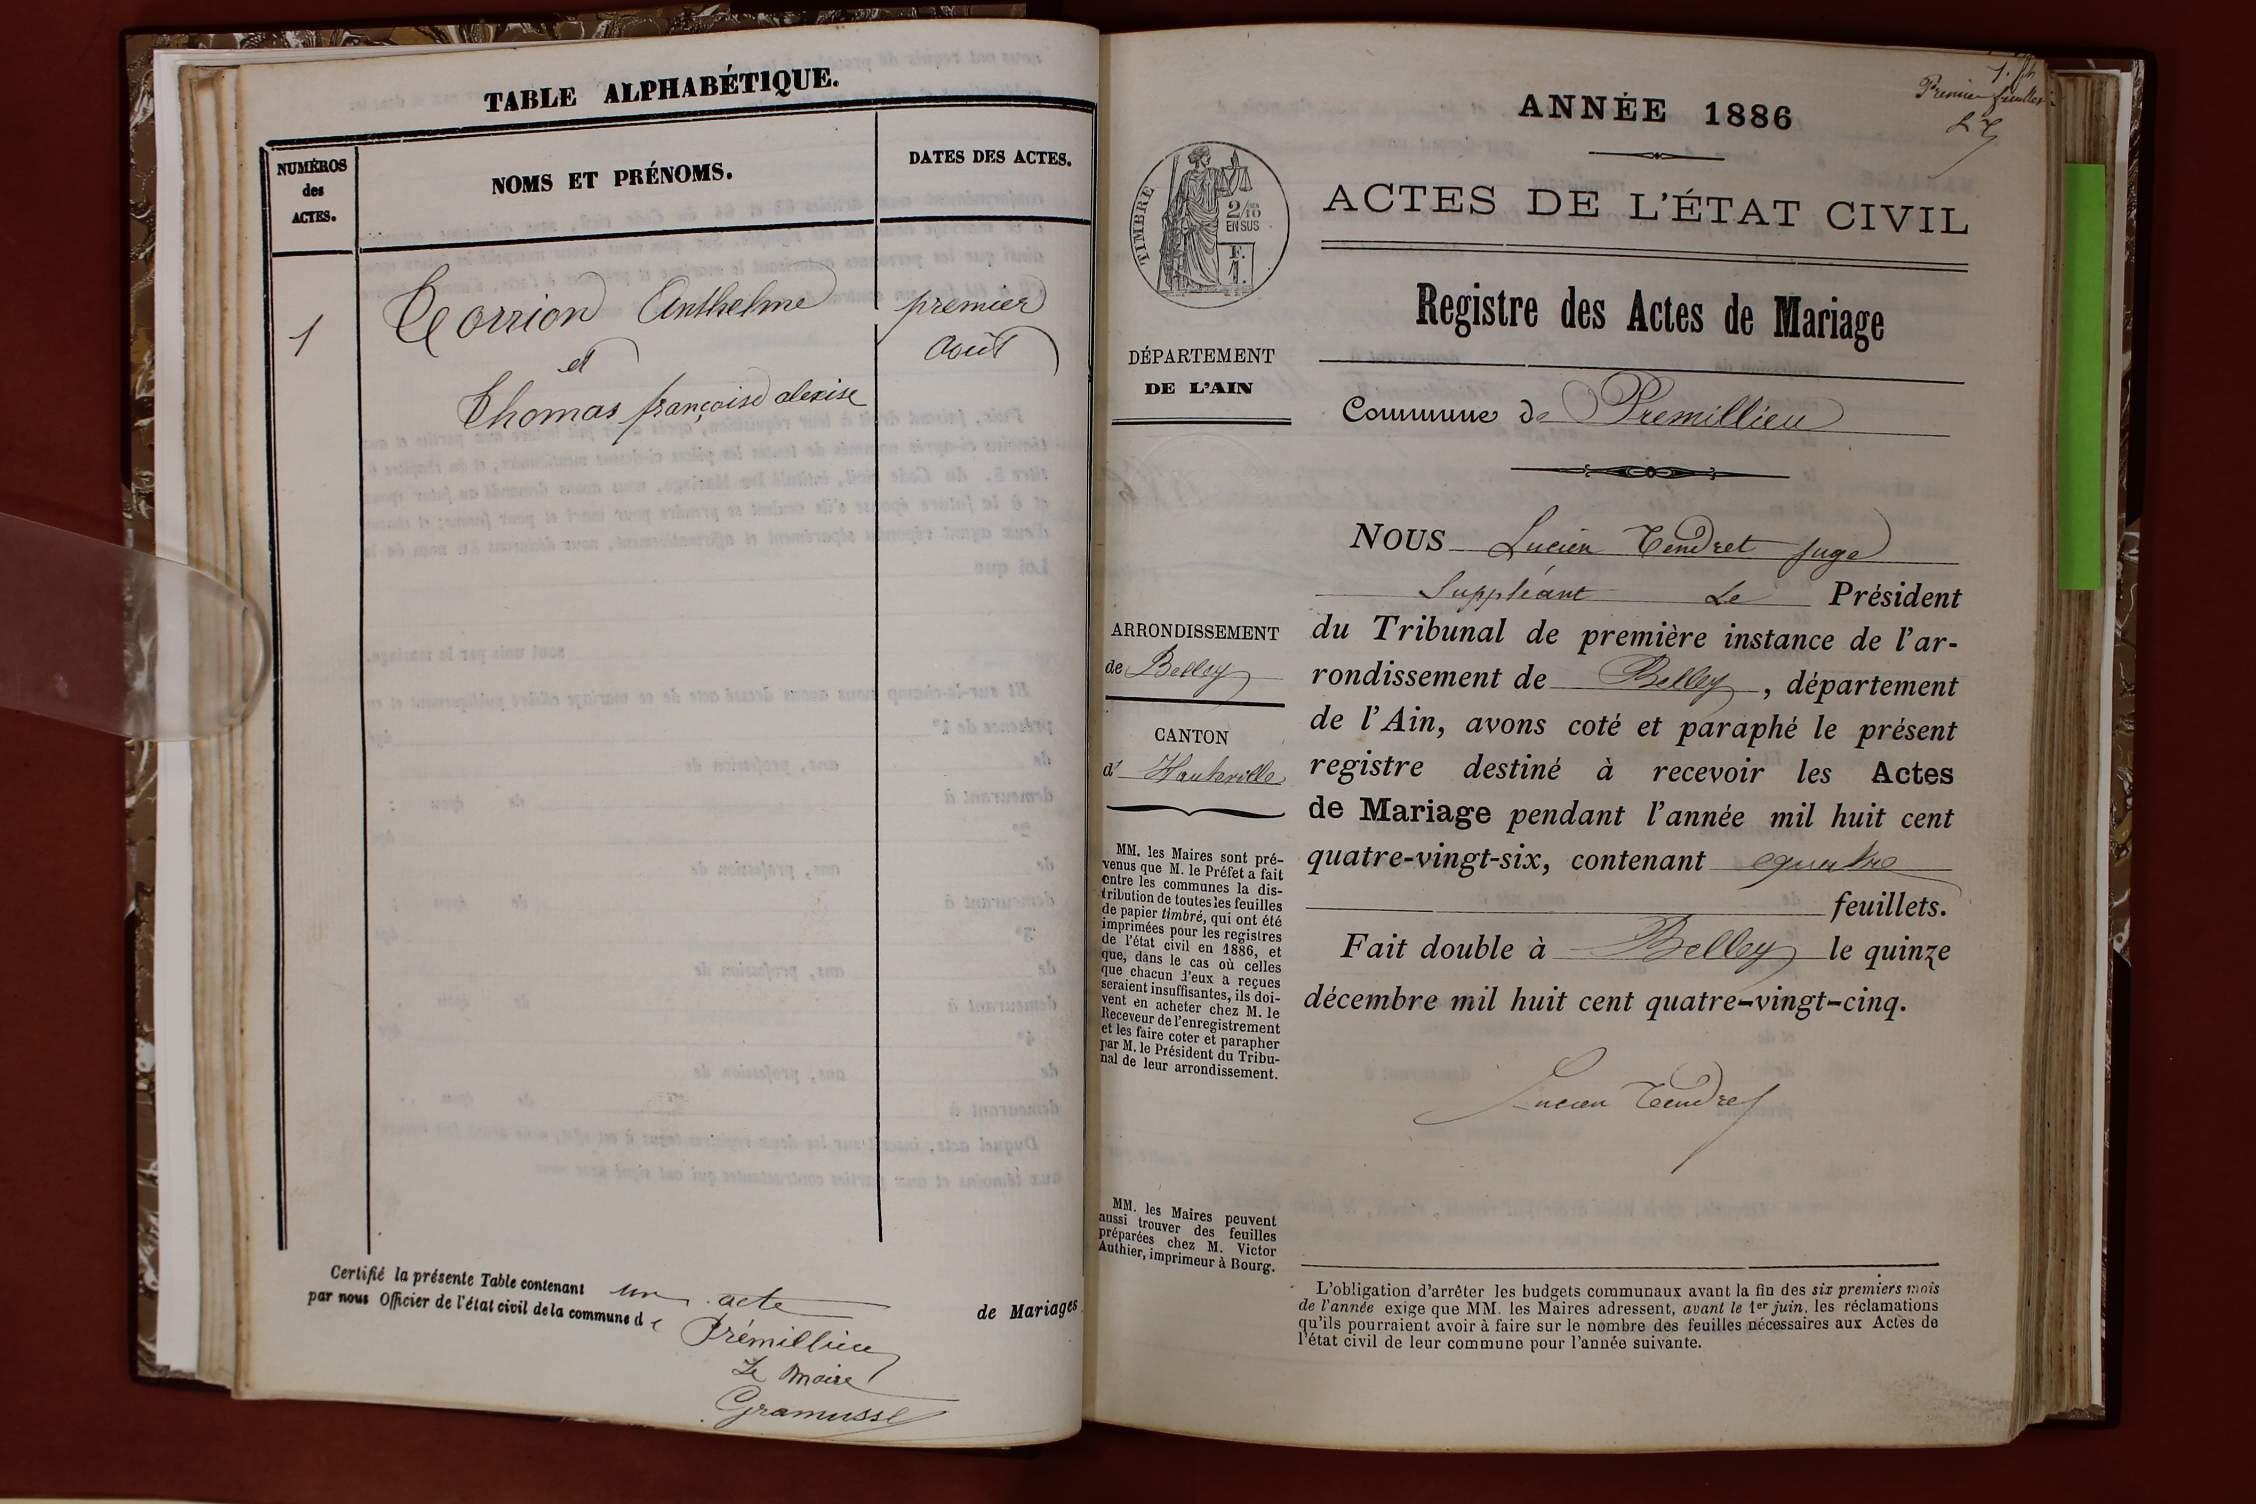 TABLE ALPHABÉTIQUE.
NUMÉROS
des
ACTES.
NOMS ET PRÉNOMS.
DATES DES ACTES.
1
Corrion Anthelme
premier
et
Août
Thomas françoise alexise
Certifié la présente Table contenant un acte de Mariages
par nous Officier de l'état civil de la commune de Prémillieu
Le Maire
Gramusset
1. f.
Premier feuillet
L T
ANNÉE 1886
ACTES DE L'ÉTAT CIVIL
TIMBRE
2/10
EN SUS
F.
1.
Registre des Actes de Mariage
DÉPARTEMENT
DE L'AIN
Commune de Premillieu
NOUS Lucien Tendret juge
Suppléant Le Président
du Tribunal de première instance de l'ar-
rondissement de Belley, département
de l'Ain, avons coté et paraphé le présent
registre destiné à recevoir les Actes
de Mariage pendant l'année mil huit cent
quatre-vingt-six, contenant quatre
feuillets.
Fait double à Belley le quinze
décembre mil huit cent quatre-vingt-cinq.
Lucien Tendret
ARRONDISSEMENT
de Belley
CANTON
d' Hauteville
MM. les Maires sont pré-
venus que M. le Préfet a fait
entre les communes la dis-
tribution de toutes les feuilles
de papier timbré, qui ont été
imprimées pour les registres
de l'état civil en 1886, et
que, dans le cas où celles
que chacun d'eux a reçues
seraient insuffisantes, ils doi-
vent en acheter chez M. le
Receveur de l'enregistrement
et les faire coter et parapher
par M. le Président du Tribu-
nal de leur arrondissement.
MM. les Maires peuvent
aussi trouver des feuilles
préparées chez M. Victor
Authier, imprimeur à Bourg.
L'obligation d'arrêter les budgets communaux avant la fin des six premiers mois
de l'année exige que MM. les Maires adressent, avant le 1er juin, les réclamations
qu'ils pourraient avoir à faire sur le nombre des feuilles nécessaires aux Actes de
l'état civil de leur commune pour l'année suivante.